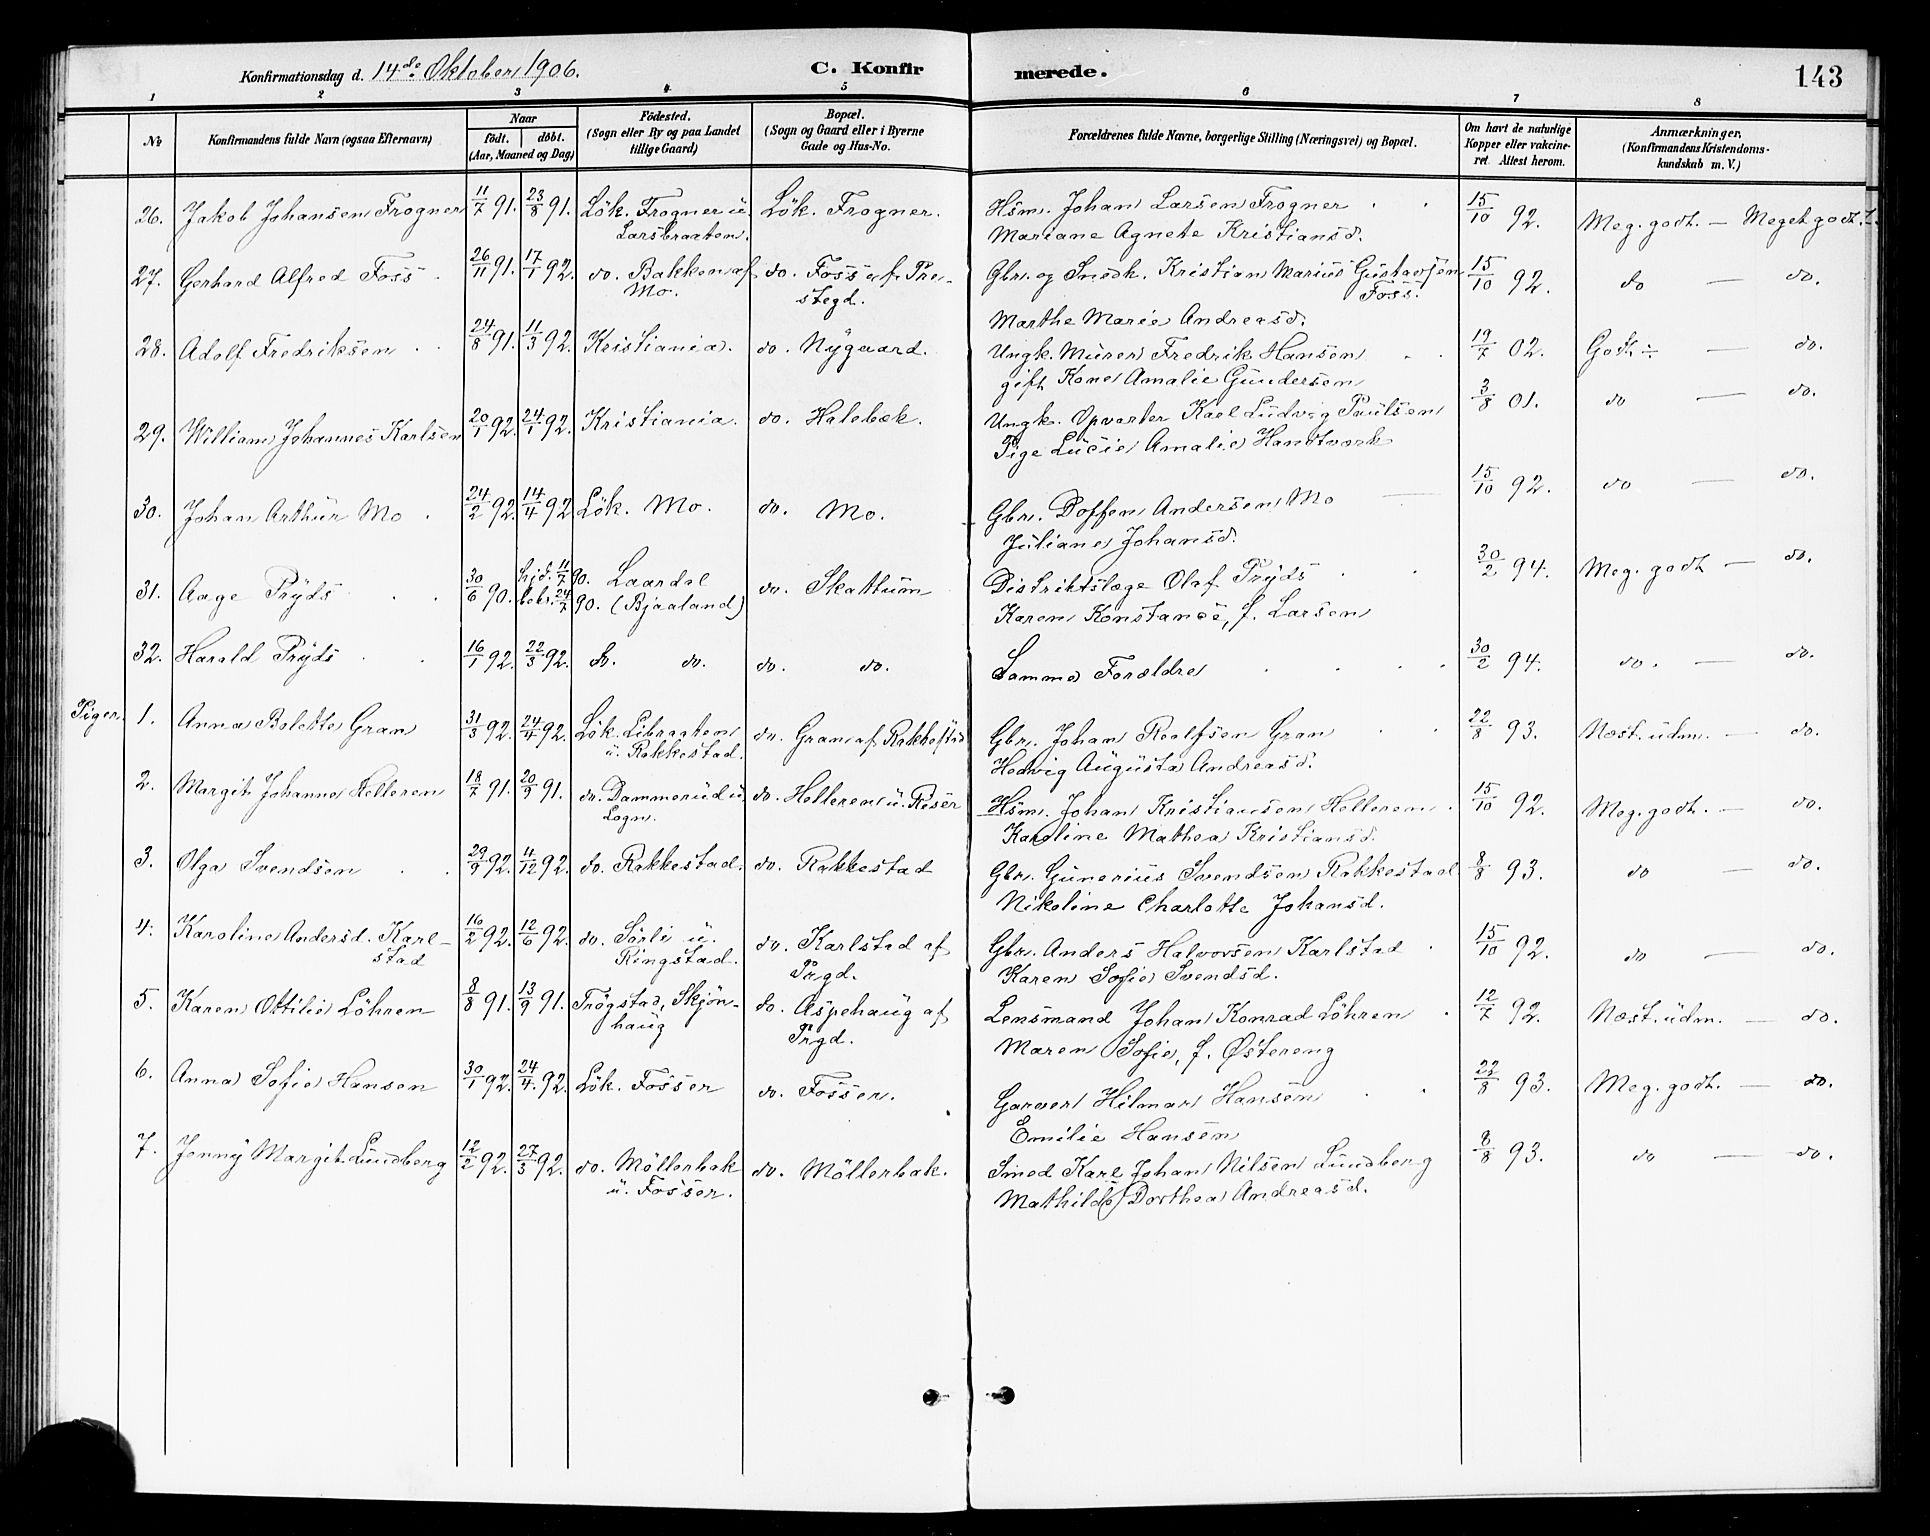 Konfirmationsdag d. 14de Oktober 1906.
C. Konfir
merede.
143
1 2 3 4 5 6 7 8
No
Konfirmandens fulde Navn (ogsaa Efternavn)
Naar
født. døbt.
(Aar, Maaned og Dag)
Fødested.
(Sogn eller By og paa Landet
tillige Gaard)
Bopæl.
(Sogn og Gaard eller i Byerne
Gade og Hus-No.
Forældrenes fulde Navne, borgerlige Stilling (Næringsvei) og Bopæl.
Om havt de naturlige
Kopper eller vakcine-
ret Attest herom.
Anmærkninger,
(Konfirmandens Kristendoms-
kundskab m. V.)
26. Jakob Johansen Frogner 11/7 91. 23/8 91. Lök. Frogner u. Lök. Frogner. Hsm. Johan Larsen Frogner 15/10 92. Meg. godt. — Meget godt.
Larsbraaten. Mariane Agnete Kristiansd.
27. Gerhard Alfred Foss 26/11 91. 17/1 92. do. Bakken af do. Foss af Pre- Gbr. og Snedk. Kristian Marius Gustavsen 15/10 92. do — do.
Mo. stegd. Foss.
Marthe Marie Andreasd.
28. Adolf Fredriksen 24/8 91. 11/3 92. Kristiania. do. Nygaard. Ungk. Murer Fredrik Hansen 19/7 02. Godt ÷ — do.
gift Kone Amalie Gundersen
29. William Johannes Karlsen 20/1 92. 24/1 92. Kristiania. do. Halebæk. Ungk. Opvarter Karl Ludvig Paulsen 3/8 01. do — do.
Pige Lucie Amalie Handtværk
30. Johan Arthur Mo 24/2 92. 14/4 92 Lök. Mo. do. Mo. Gbr. Doffen Andersen Mo 15/10 92. do — do.
Juliane Johansd.
31. Aage Pryds 30/6 90. hjd. 11/7 90. Laardal do. Skattum Distriktslæge Olaf Pryds 30/2 94. Meg. godt — do.
bekr. 24/7 90. (Bjaaland) Karen Konstance, f. Larsen
32. Harald Pryds 16/1 92. 22/3 92. do. do. do. do. Samme Forældre 30/2 94. do. — do.
Piger. 1. Anna Bolette Gran 31/3 92. 24/4 92. Lök. Libraaten do. Gran af Rakkestad Gbr. Johan Roalfsen Gran 22/8 93. Næst. udm. — do.
u. Rakkestad. Hedvig Augusta Andreasd.
2. Margit Johanne Helleren 18/7 91. 20/9 91. do. Dammerud u. do. Helleren u. Riser Hsm. Johan Kristiansen Helleren 15/10 92. Meg. godt. — do.
Logn. Karoline Mathea Kristiansd.
3. Olga Svendsen 29/9 92. 4/12 92. do. Rakkestad. do. Rakkestad Gbr. Gunerius Svendsen Rakkestad 8/8 93. do — do.
Nikoline Charlotte Johansd.
4. Karoline Andersd. Karl- 16/2 92. 12/6 92. do. Sörli u. do. Karlstad af Gbr. Anders Halvorsen Karlstad 15/10 92. do — do.
stad Ringstad. Prgd. Karen Sofie Svendsd.
5. Karen Ottilie Löhren 8/8 91. 13/9 91. Trögstad, Skjön- do. Aspehaug af Lensmand Johan Konrad Löhren 12/7 92. Næst. udm. — do.
haug Prgd. Maren Sofie, f. Østereng
6. Anna Sofie Hansen 30/1 92. 24/4 92. Lök. Fosser do. Fosser. Garver Hilmar Hansen 22/8 93. Meg. godt. — do.
Emilie Hansen
7. Jenny Margit Lundberg 12/2 92. 27/3 92. do. Möllerbak do. Möllerbak. Smed Karl Johan Nilsen Lundberg 8/8 93. do — do.
u. Fosser. Mathilde Dorthea Andreasd.